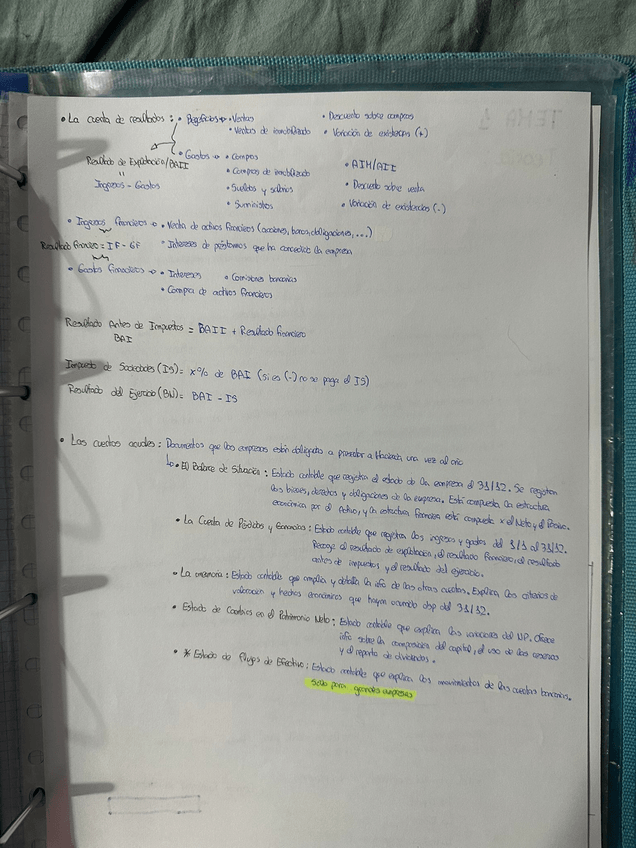 • La cuenta de resultados: • Beneficios → • Ventas • Descuento sobre compras
• Ventas de inmobilizado • Variación de existencias (+)
• Gastos → • Compras • AIM/AII
Resultado de Explotación/BAII • Compras de inmobilizado
Ingresos - Gastos • Sueldos y salarios • Descuento sobre venta
• Suministros • Variación de existencias (-)
• Ingresos financieros → • Venta de activos financieros (acciones, bonos, obligaciones, ...)
Resultado financiero = IF - GF • Intereses de préstamos que ha concedido la empresa
• Gastos financieros → • Intereses • Comisiones bancarias
• Compra de activos financieros
Resultado Antes de Impuestos = BAII + Resultado financiero
BAI
Impuesto de Sociedades (IS) = x% de BAI (si es (-) no se paga el IS)
Resultado del Ejercicio (BN) = BAI - IS
• Las cuentas anuales: Documentos que las empresas están obligadas a presentar a Hacienda una vez al año
↳ • El Balance de Situación: Estado contable que registra el estado de la empresa el 31/12. Se registran
los bienes, derechos y obligaciones de la empresa. Está compuesta la estructura
económica por el Activo, y la estructura financiera está compuesta x el Neto y el Pasivo.
• La Cuenta de Pérdidas y Ganancias: Estado contable que registra los ingresos y gastos del 1/1 al 31/12.
Recoge el resultado de explotación, el resultado financiero, el resultado
antes de impuestos y el resultado del ejercicio.
• La memoria: Estado contable que amplia y detalla la info de las otras cuentas. Explica los criterios de
valoración y hechos económicos que hayan ocurrido dsp del 31/12.
• Estado de Cambios en el Patrimonio Neto: Estado contable que explica las variaciones del NP. Ofrece
info sobre la composición del capital, el uso de las reservas
y el reparto de dividendos.
• * Estado de Flujos de Efectivo: Estado contable que explica los movimientos de las cuentas bancarias.
Solo para grandes empresas